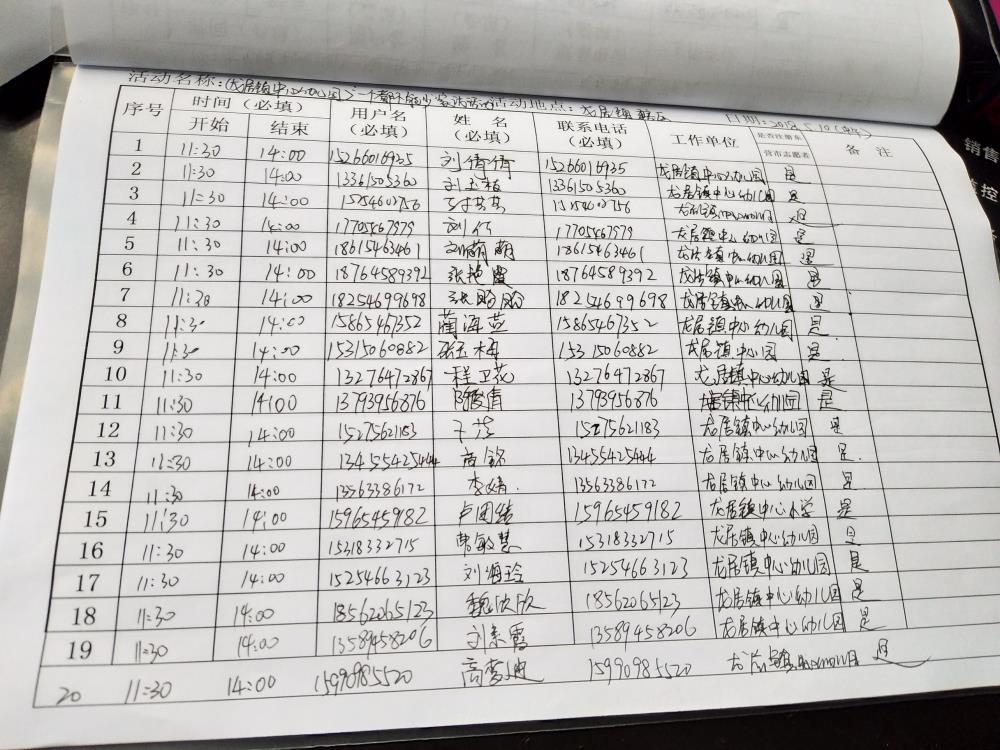 活动名称:(龙居镇中心幼儿园) 一个都不能少 活动地点: 龙居镇 日期: 2018.5.19
序号 时间(必填) 用户名(必填) 姓名(必填) 联系电话(必填) 工作单位 是否注册东营市志愿者 备注
开始 结束
1 11:30 14:00 15266016935 刘倩倩 15266016935 龙居镇中心幼儿园 是
2 11:30 14:00 13361505360 刘玉梅 13361505360 龙居镇中心幼儿园 是
3 11:30 14:00 15154602756 15154602756 是
4 11:30 14:00 17705467979 刘仁 17705467979 龙居镇中心幼儿园 是
5 11:30 14:00 18615463461 刘萌萌 18615463461 龙居镇中心幼儿园 是
6 11:30 14:00 18764589392 张艳霞 18764589392 龙居镇中心幼儿园 是
7 11:30 14:00 18254699698 张盼盼 18254699698 龙居镇中心幼儿园 是
8 11:30 14:00 15865467352 蔺海燕 15865467352 龙居镇中心幼儿园 是
9 11:30 14:00 15315060882 张玉梅 15315060882 龙居镇中心园 是
10 11:30 14:00 13276472867 程卫花 13276472867 龙居镇中心幼儿园 是
11 11:30 14:00 13793956876 13793956876 龙居镇中心幼儿园 是
12 11:30 14:00 15275621183 15275621183 龙居镇中心幼儿园 是
13 11:30 14:00 13455425444 商铭 13455425444 龙居镇中心幼儿园 是
14 11:30 14:00 13563386172 李婧 13563386172 龙居镇中心幼儿园 是
15 11:30 14:00 15965459182 卢团结 15965459182 龙居镇中心小学 是
16 11:30 14:00 15318332715 常敏慧 15318332715 龙居镇中心幼儿园 是
17 11:30 14:00 15254663123 刘海玲 15254663123 龙居镇中心幼儿园 是
18 11:30 14:00 18562065123 魏欣欣 18562065123 龙居镇中心幼儿园 是
19 11:30 14:00 13589458206 刘素霞 13589458206 龙居镇中心幼儿园 是
20 11:30 14:00 15990985520 高梦迪 15990985520 是
销售
监控